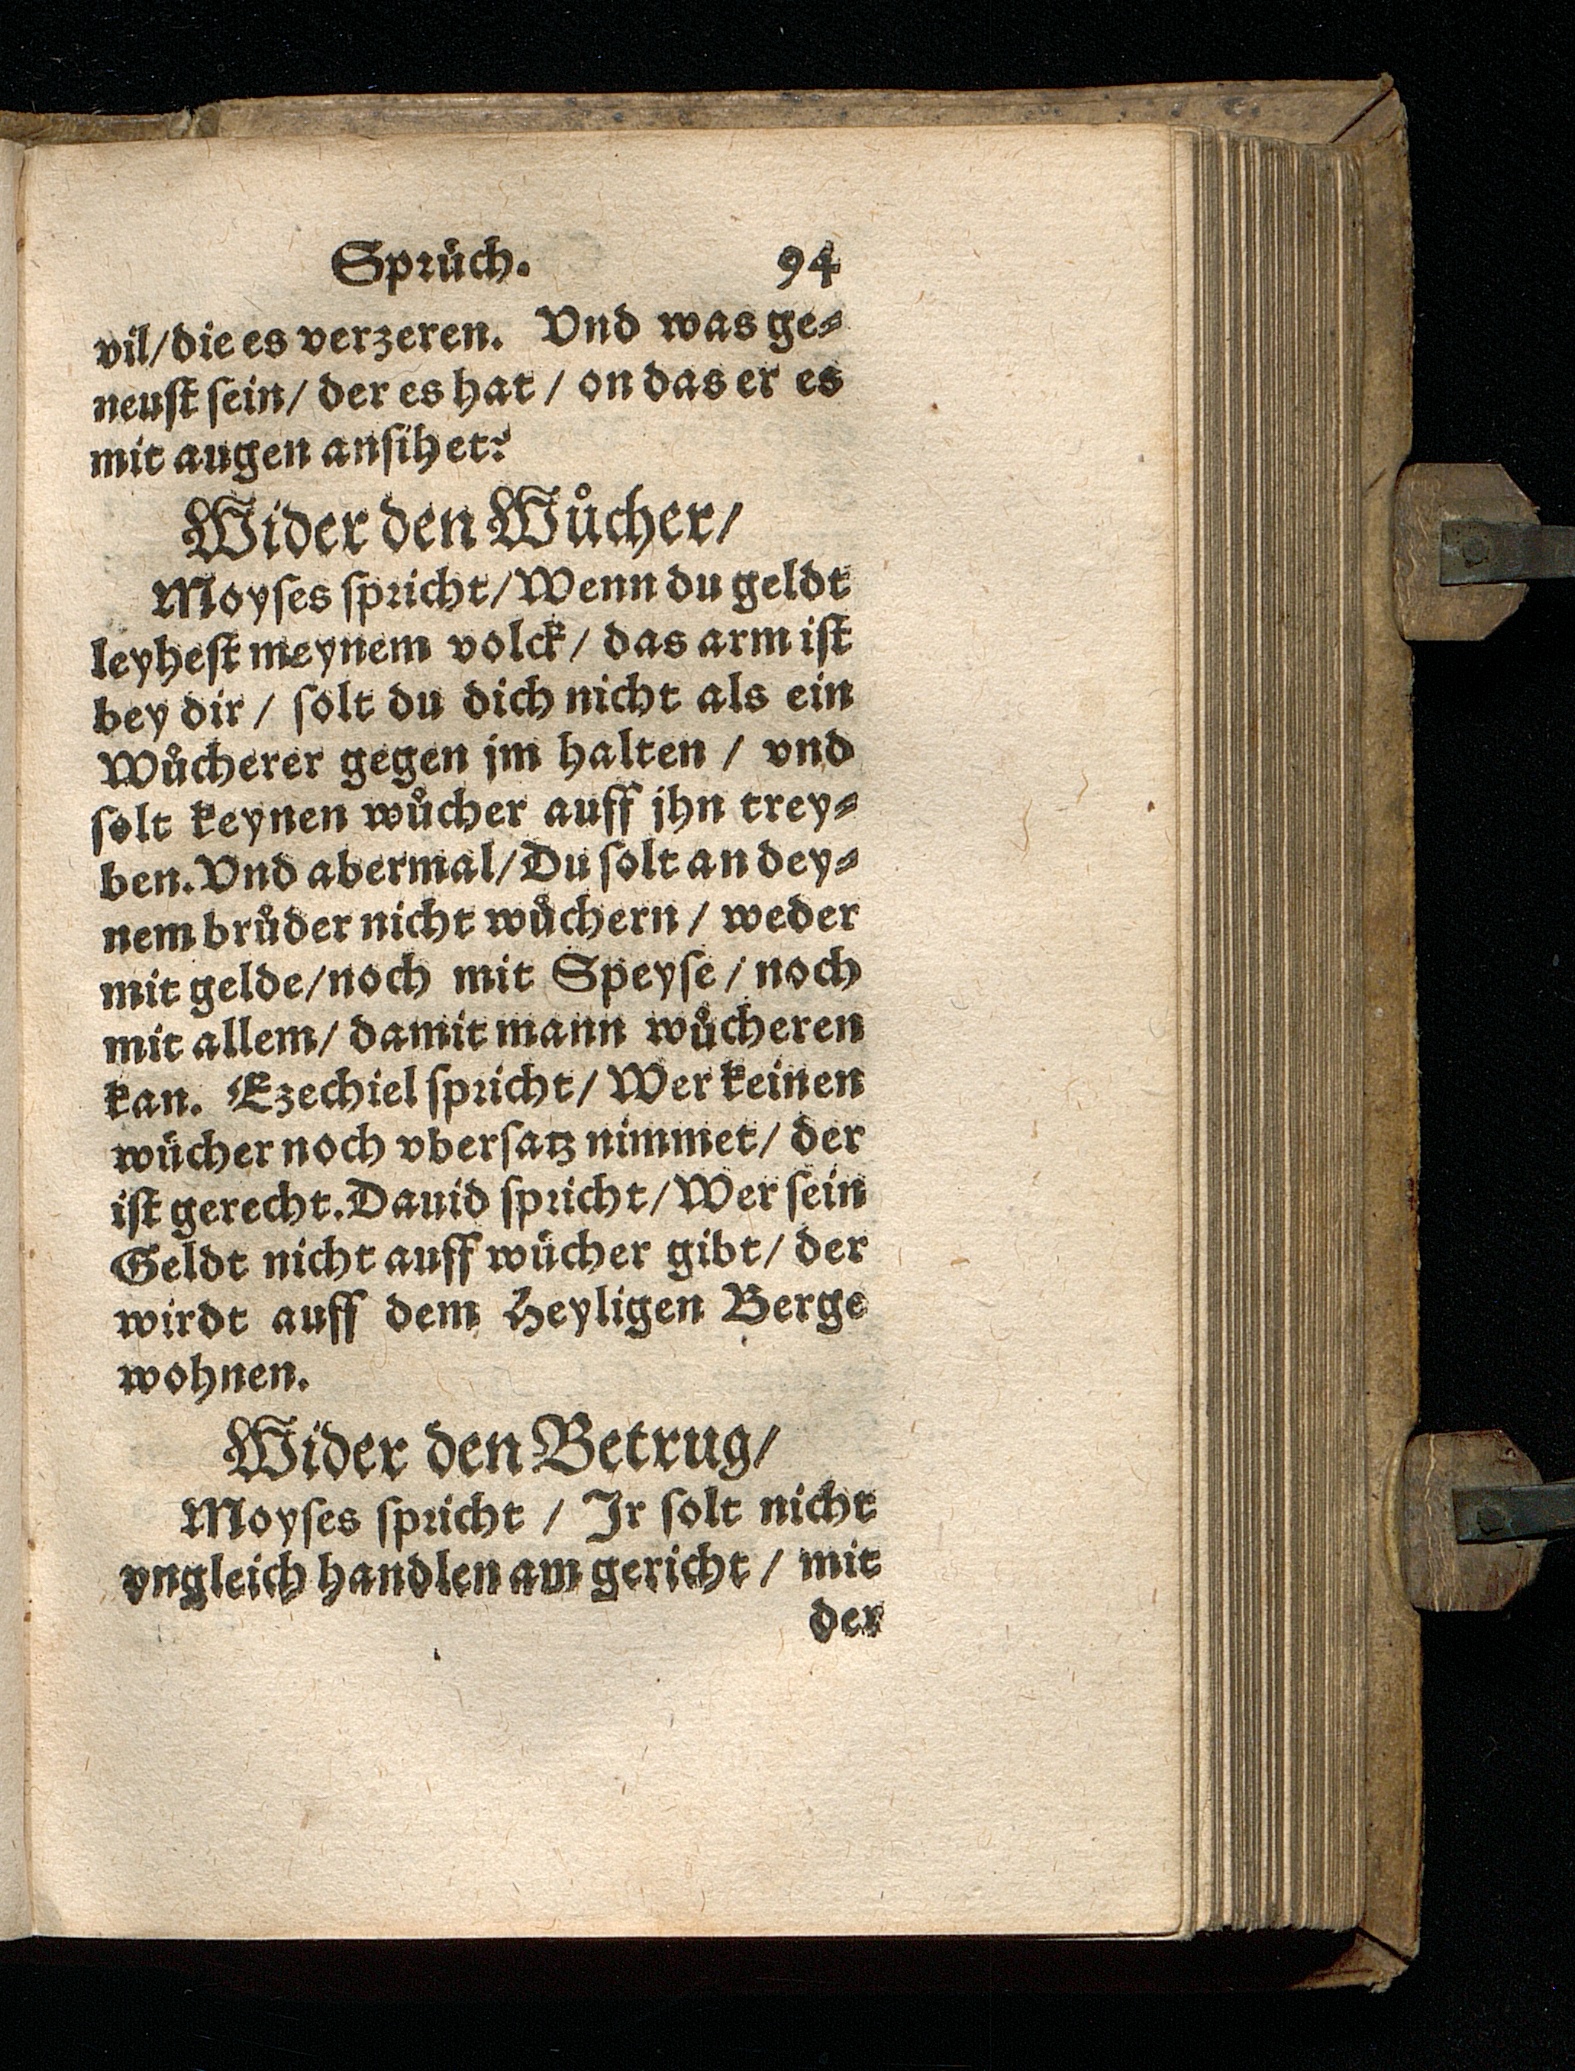 Sprüch. 94
vil/die es verzeren. Vnd was ge⸗
neuſt ſein/ der es hat / on das er es
mit augen anſihet?
Wider den Wůcher/
Moyſes ſpꝛicht/Wenn du geldt
leyheſt meynem volck/ das arm iſt
bey dir / ſolt du dich nicht als ein
Wůcherer gegen jm halten / vnd
ſolt keynen wůcher auff jhn trey⸗
ben.Vnd abermal/Du ſolt an dey⸗
nem brůder nicht wůchern / weder
mit gelde/noch mit Speyſe / noch
mit allem/ damit mann wůcheren
kan. Ezechiel ſpꝛicht/ Wer keinen
wücher noch vberſatz nimmet/ der
iſt gerecht.Dauid ſpꝛicht/Wer ſein
Geldt nicht auff wücher gibt/ der
wirdt auff dem Heyligen Berge
wohnen.
Wider den Betrug/
Moyſes ſpꝛicht / Jr ſolt nicht
vngleich handlen am gericht / mit
der